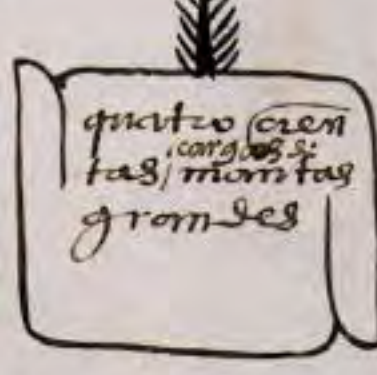 quatro çien
cargas de
tas / mantas
grandes